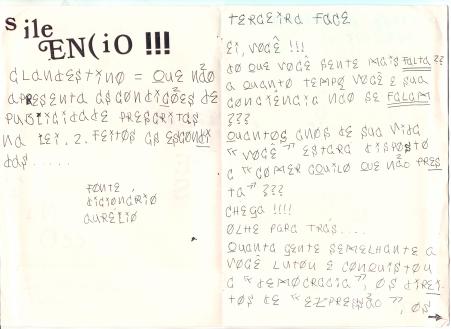 sileENCiO !!!
CLANDESTINO = QUE NÃO
APRESENTA AS CONDIÇÕES DE
PUBLICIDADE PRESCRITAS
NA LEI. 2. FEITOS AS ESCONDI
DAS......
FONTE,
DICIONÁRIO
AURELIO
TERCEIRA FACE
EI, VOCÊ !!!
DO QUE VOCÊ SENTE MAIS FALTA??
A QUANTO TEMPO VOCÊ E SUA
CONCIÊNCIA NÃO SE FALAM
???
QUANTOS ANOS DE SUA VIDA
"VOCÊ" ESTARA DISPOSTO
A "COMER AQUILO QUE NÃO PRES
TA" ???
CHEGA !!!!
OLHE PARA TRÁS....
QUANTA GENTE SEMELHANTE A
VOCÊ LUTOU E CONQUISTOU
A "DEMOCRACIA", OS DIREI
TOS DE "EXPRESSÃO", OS